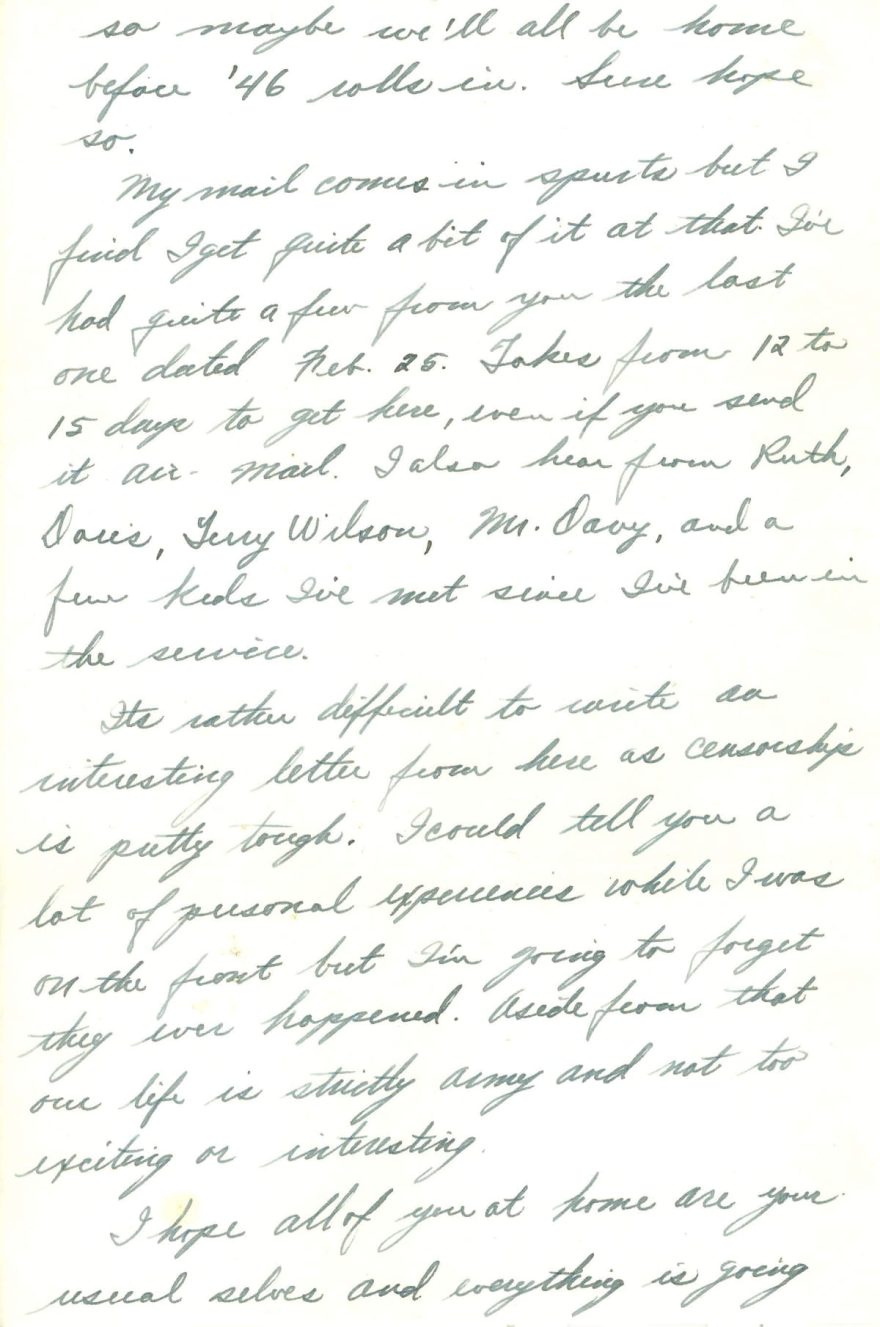 so maybe we'll all be home
before '46 rolls in. Sure hope
so.
My mail comes in spurts but I
find I get quite a bit of it at that. I've
had quite a few from you the last
one dated Feb. 25. Takes from 12 to
15 days to get here, even if you send
it air-mail. I also hear from Ruth,
Doris, Terry Wilson, Mr. Davy, and a
few kids I've met since I've been in
the service.
Its rather difficult to write an
interesting letter from here as censorship
is pretty tough. I could tell you a
lot of personal experiences while I was
on the front but I'm going to forget
they ever happened. Aside from that
our life is strictly army and not too
exciting or interesting.
I hope all of you at home are your
usual selves and everything is going